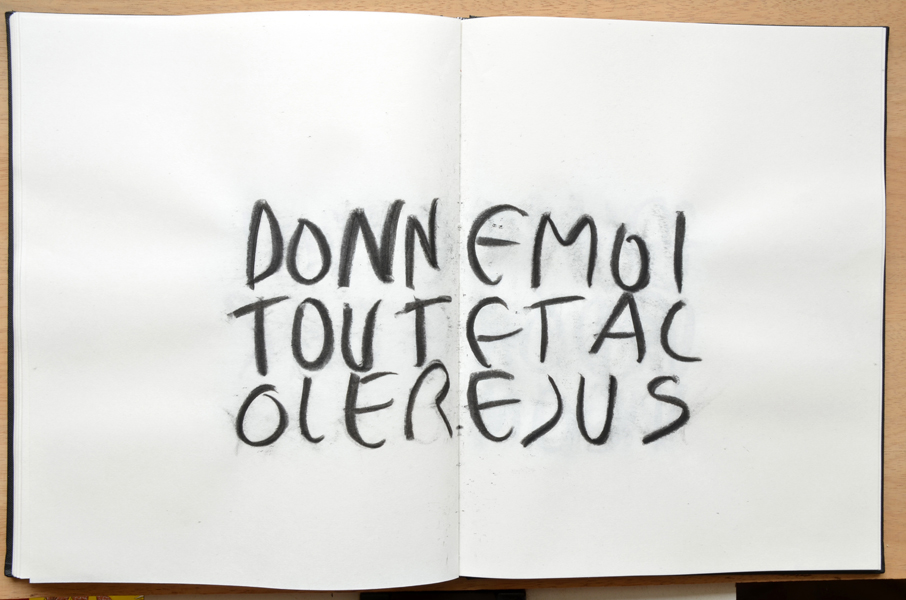 DONNEMOI
TOUTETAC
OLEREJUS